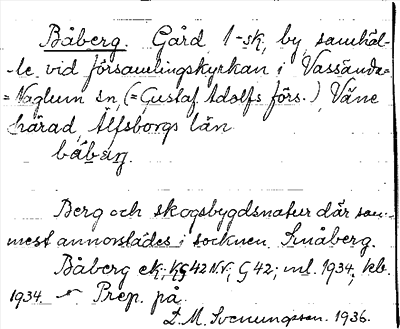 Båberg. Gård, 1-sk, by, samhäl-
-le vid församlingskyrkan i Vassända-
=Naglum sn, (=Gustaf Adolfs förs.) Väne
härad, Älfsborgs län.
Berg och skogsbygdsnatur där som
mest annorstädes i socknen Småberg.
Båberg ek. G 42; ml. 1934, kb.
1934. Prep. på
D. M. Svenungsson. 1936.